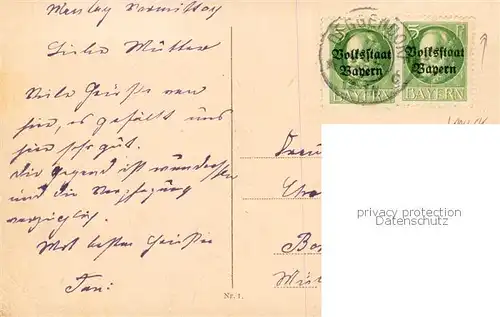 Montag Vormittag
Liebe Mutter
Viele Grüsse von
hier, es gefällt uns
hier sehr gut.
die Gegend ist wunder
und die Verpflegung
vorzüglich.
Mit besten Grüssen
DEGGENDORF
Volksstaat Bayern
BAYERN
5
Volksstaat Bayern
BAYERN
privacy protection
Datenschutz
Nr. 1.